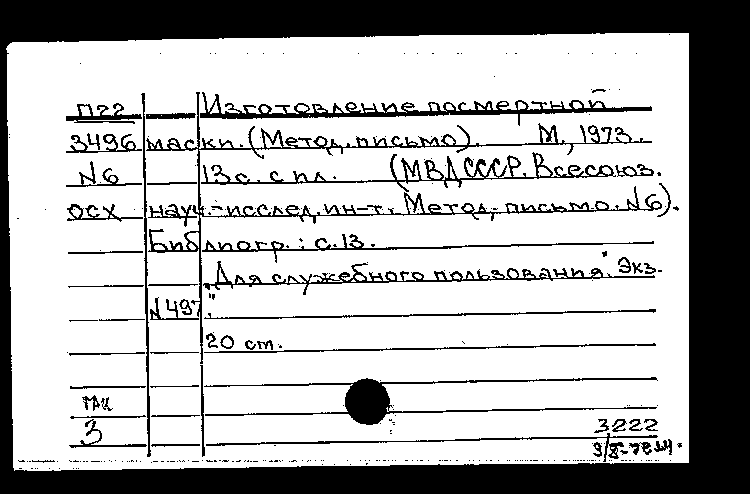 П22 Изготовление посмертной
3496 маски. (Метод. письмо). М., 1973.
№6 13 с. с пл. (МВД СССР. Всесоюз.
ОСХ науч.-исслед. ин-т. Метод. письмо. №6).
Библиогр.: с. 13.
"Для служебного пользования". Экз.
№497."
20 ст.
3
3222